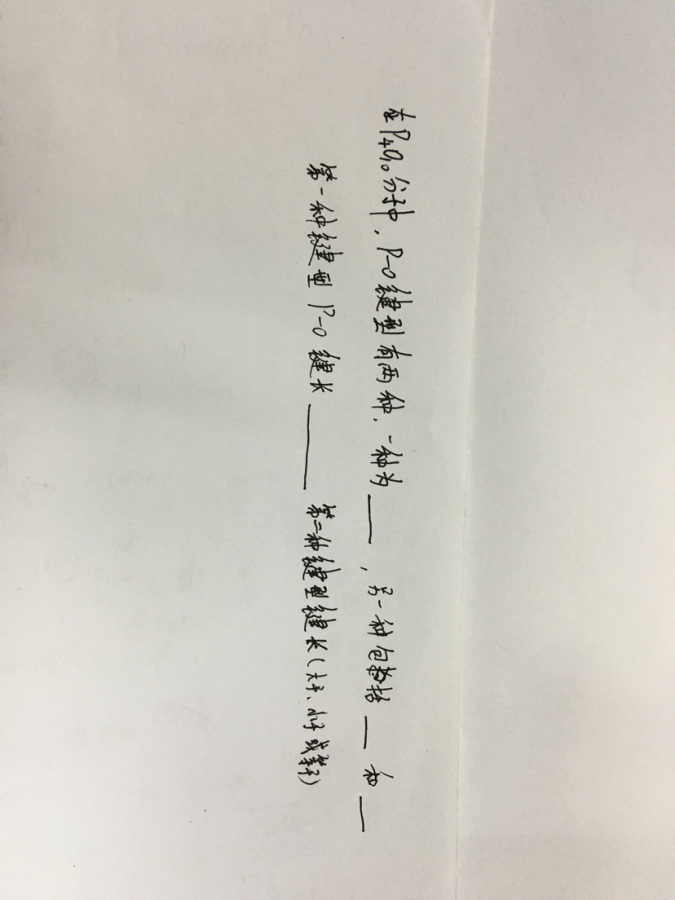 在P4O10分子中，P-O键型有两种，一种为___，另一种包括___和___
第一种键型P-O键长____第二种键型键长(大于、小于或等于)